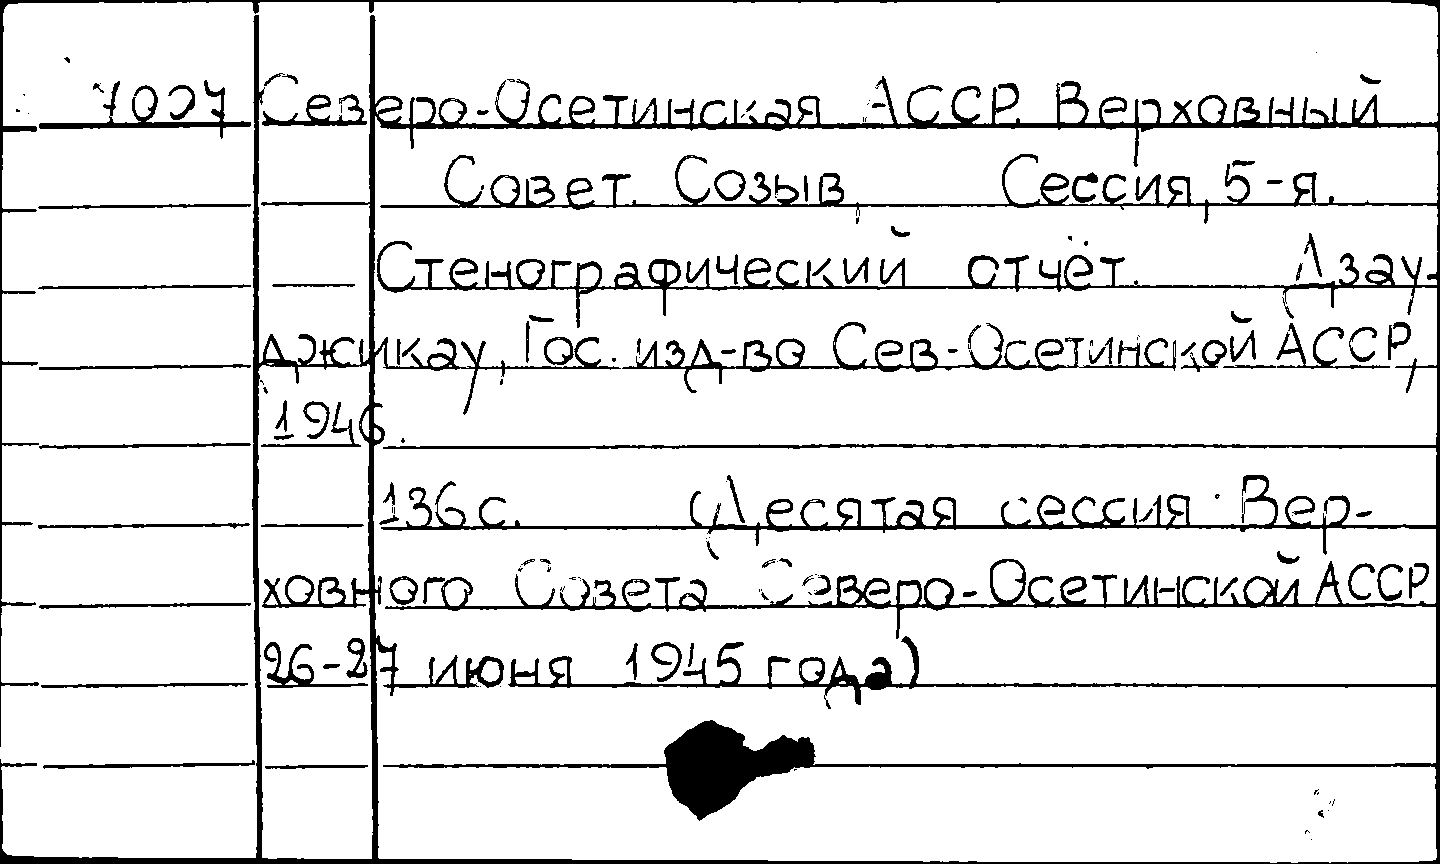 7007 Северо-Осетинская АССР. Верховный
Совет. Созыв, Сессия, 5-я.
Стенографический отчёт. Дзау-
джикау, Гос. изд-во Сев-Осетинской АССР,
1946.
136 с. (Десятая сессия Вер-
ховного Совета Северо-Осетинской АССР.
26-27 июня 1945 года)